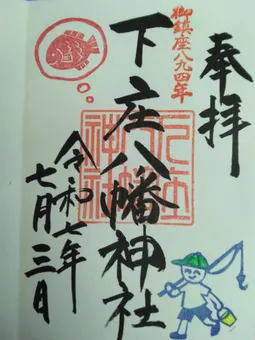 奉拝
御鎮座八九四年
下庄八幡神社
令和七年
七月三日